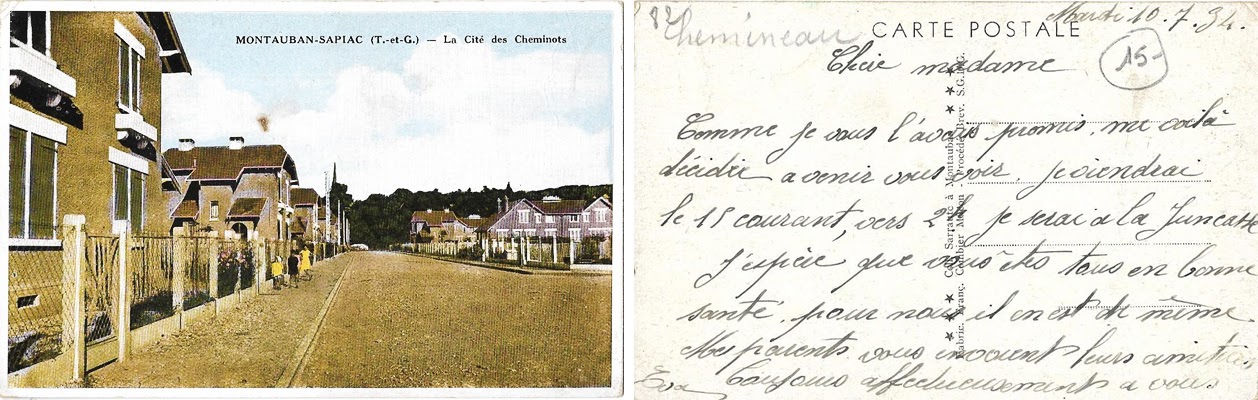 MONTAUBAN-SAPIAC (T.-et-G.) — La Cité des Cheminots
82
Chemineau
CARTE POSTALE
Mardi 10.7.34.
15-
Chère madame
Comme je vous l'avais promis, me voilà
décidée a venir vous voir. je viendrai
le 15 courant, vers 2h je serai a la
J'espère que vous êtes tous en bonne
santé. pour nous il en est de même.
Mes parents vous envoient leurs amitiés.
Toujours affectueusement a vous
Eva
Sarraute à Montauban
Fabric. Franç. Combier Mâcon - Procédé Brev. S.G.D.G.